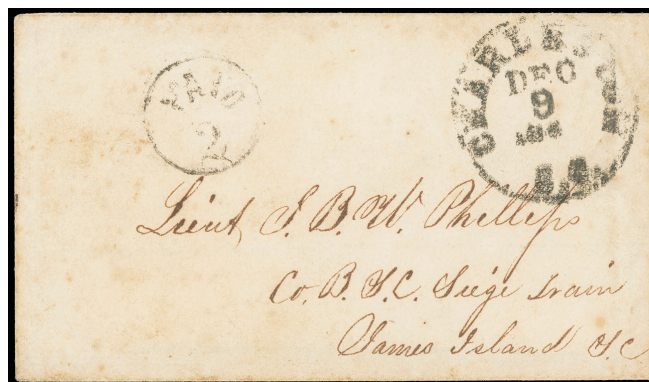 PAID
2
CHARLESTON
DEC
9
Lieut, J. B. W. Phillips
Co. B. S. C. Siege Train
James Island S. C